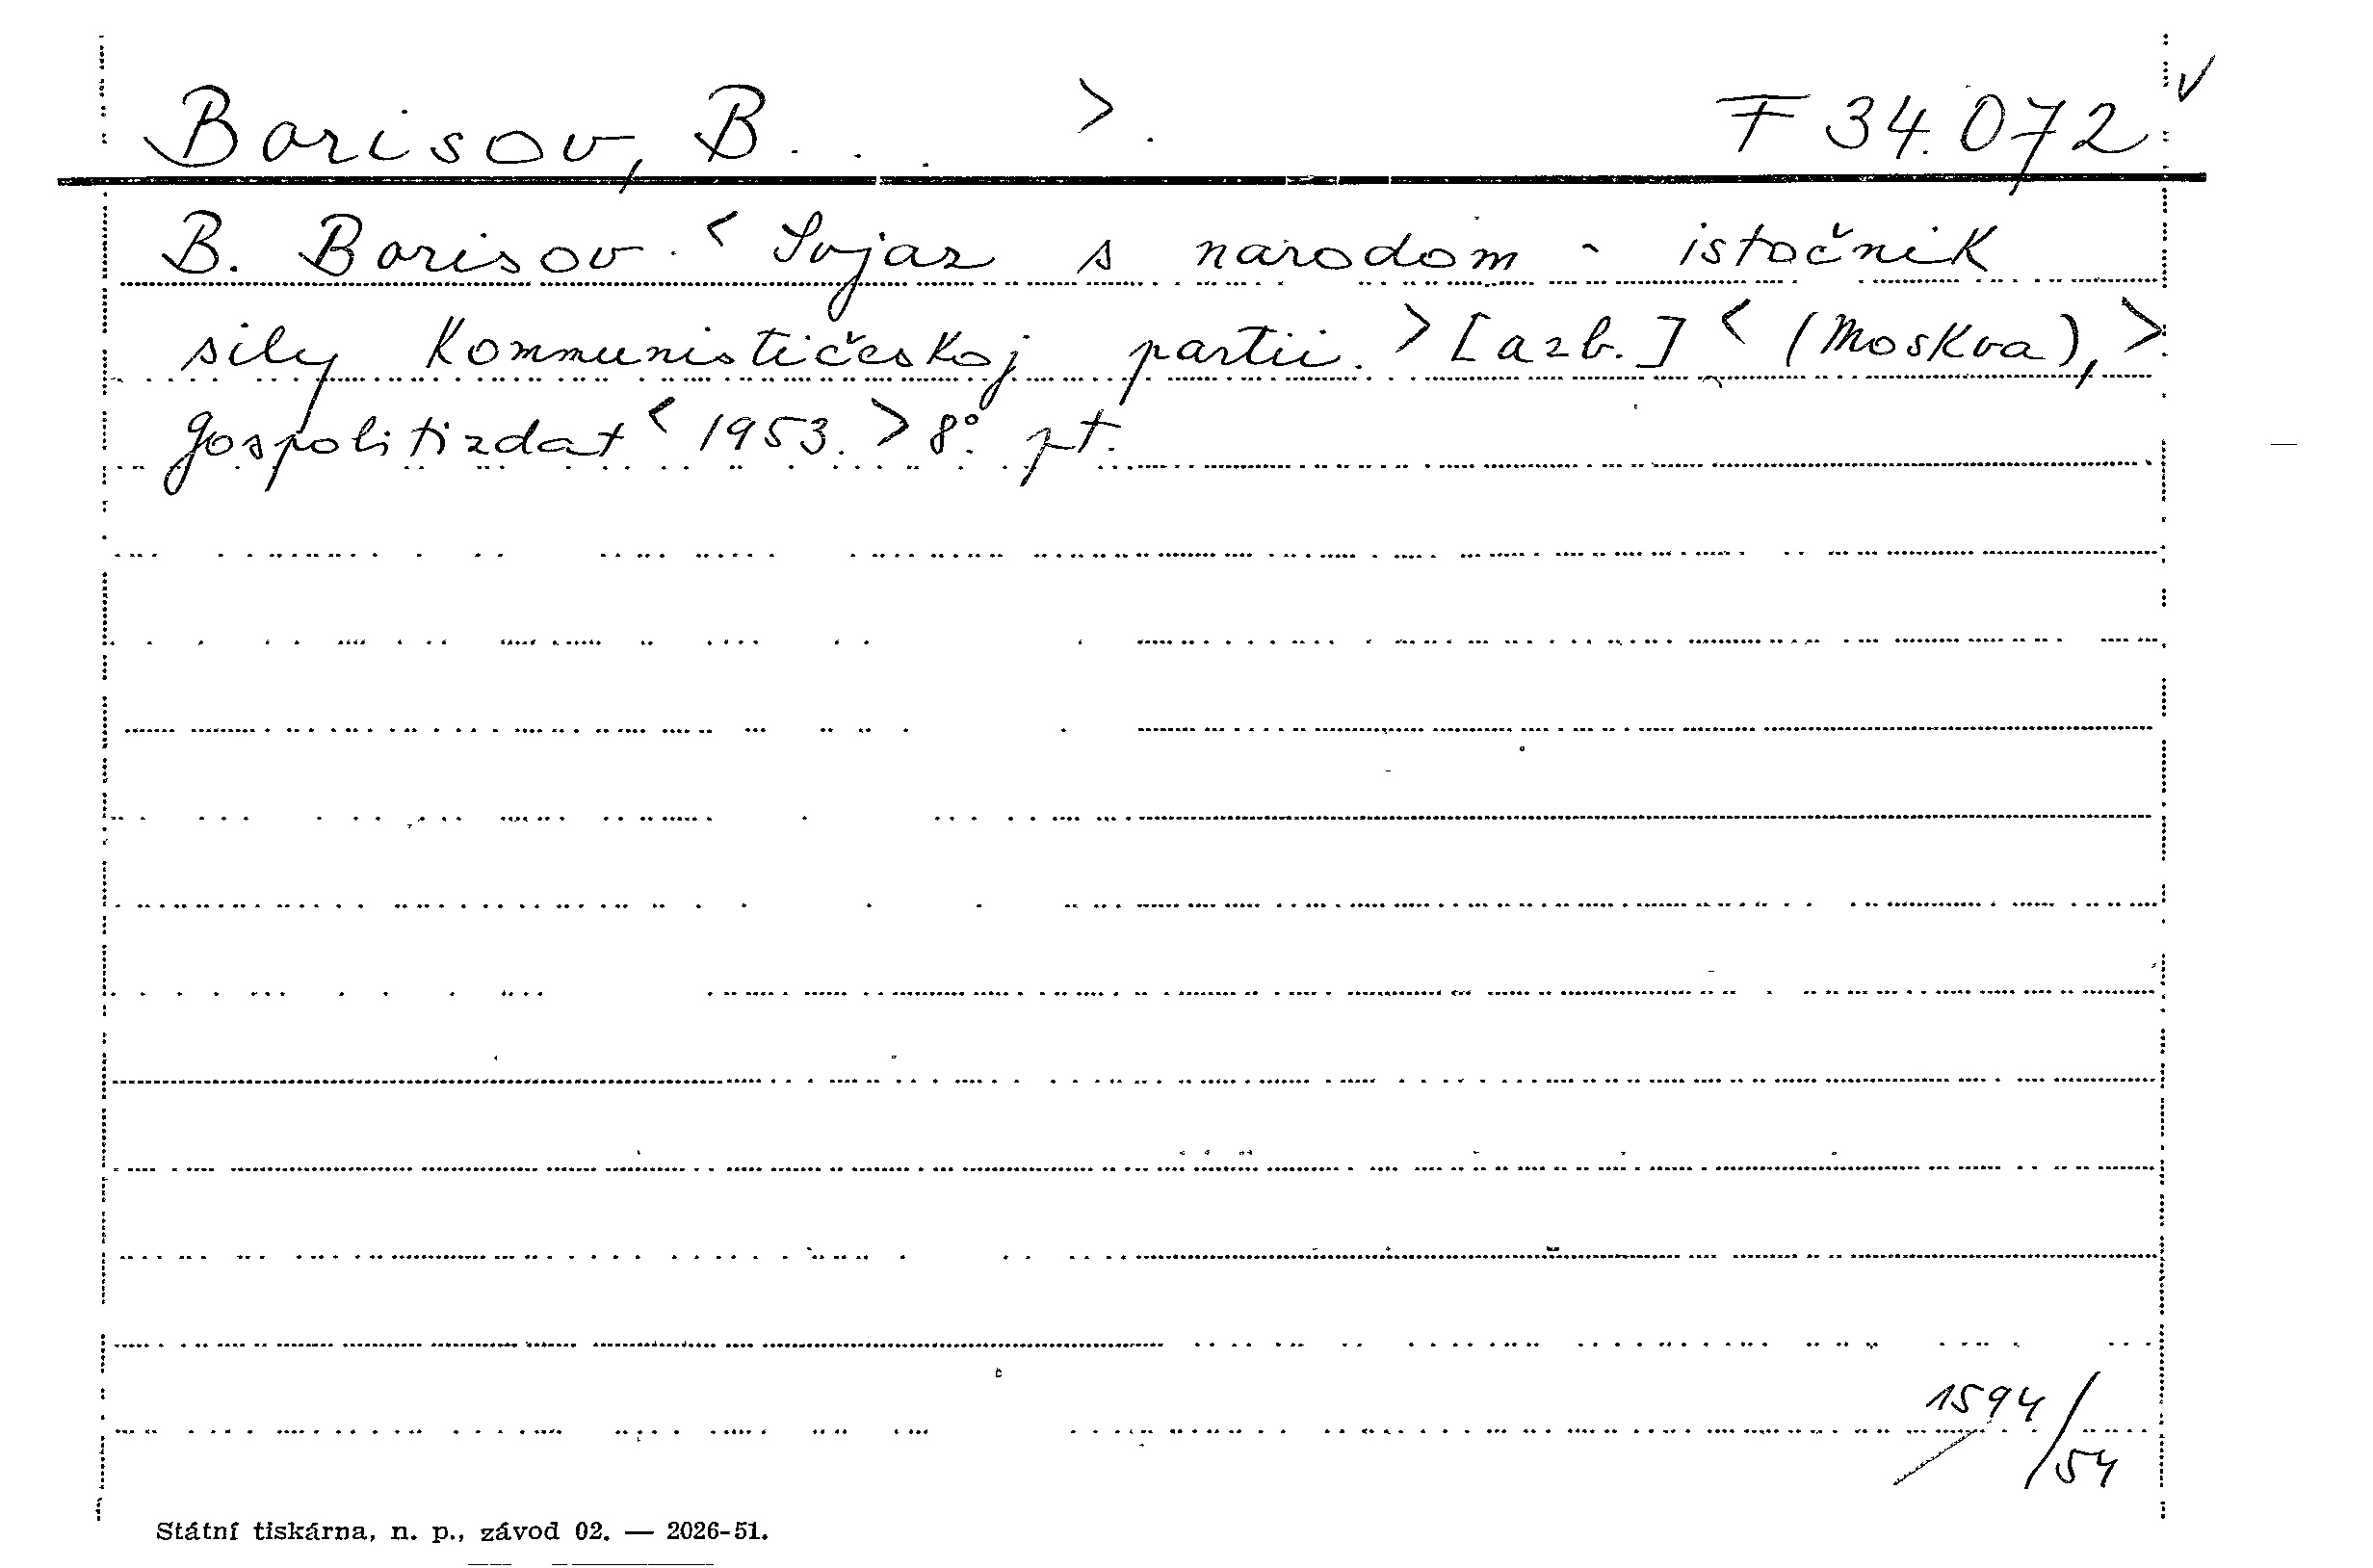 Borisov, B. . . >. F 34.072 ✓
B. Borisov. < Svjaz s narodom - istočnik
sily Kommunističeskoj partii. > [azb.] < (Moskva), >
Gospolitizdat < 1953. > 8°. pt.
1594/54
Státní tiskárna, n. p., závod 02. — 2026-51.